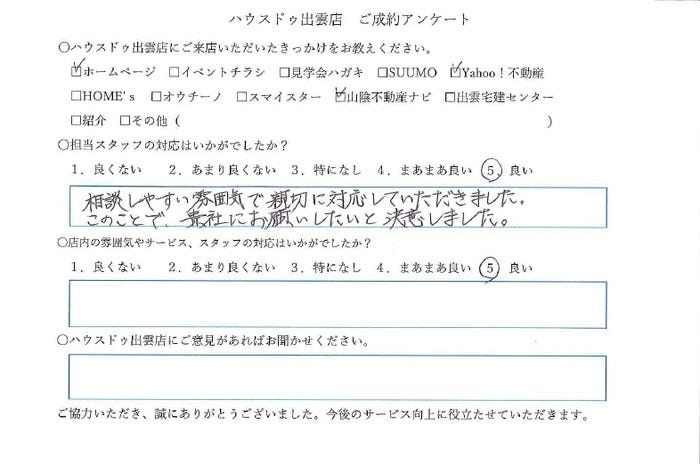 ハウスドゥ出雲店　ご成約アンケート
〇ハウスドゥ出雲店にご来店いただいたきっかけをお教えください。
☑ホームページ　□イベントチラシ　□見学会ハガキ　□SUUMO　☑Yahoo！不動産
□HOME's　□オウチーノ　□スマイスター　☑山陰不動産ナビ　□出雲宅建センター
□紹介　□その他（　　　　　　　　　　　　　　　　　　　　　　　）
〇担当スタッフの対応はいかがでしたか？
1．良くない　　2．あまり良くない　3．特になし　4．まあまあ良い　⑤　良い
相談しやすい雰囲気で親切に対応していただきました。
このことで、貴社にお願いしたいと決意しました。
〇店内の雰囲気やサービス、スタッフの対応はいかがでしたか？
1．良くない　　2．あまり良くない　3．特になし　4．まあまあ良い　⑤　良い
〇ハウスドゥ出雲店にご意見があればお聞かせください。
ご協力いただき、誠にありがとうございました。今後のサービス向上に役立たせていただきます。